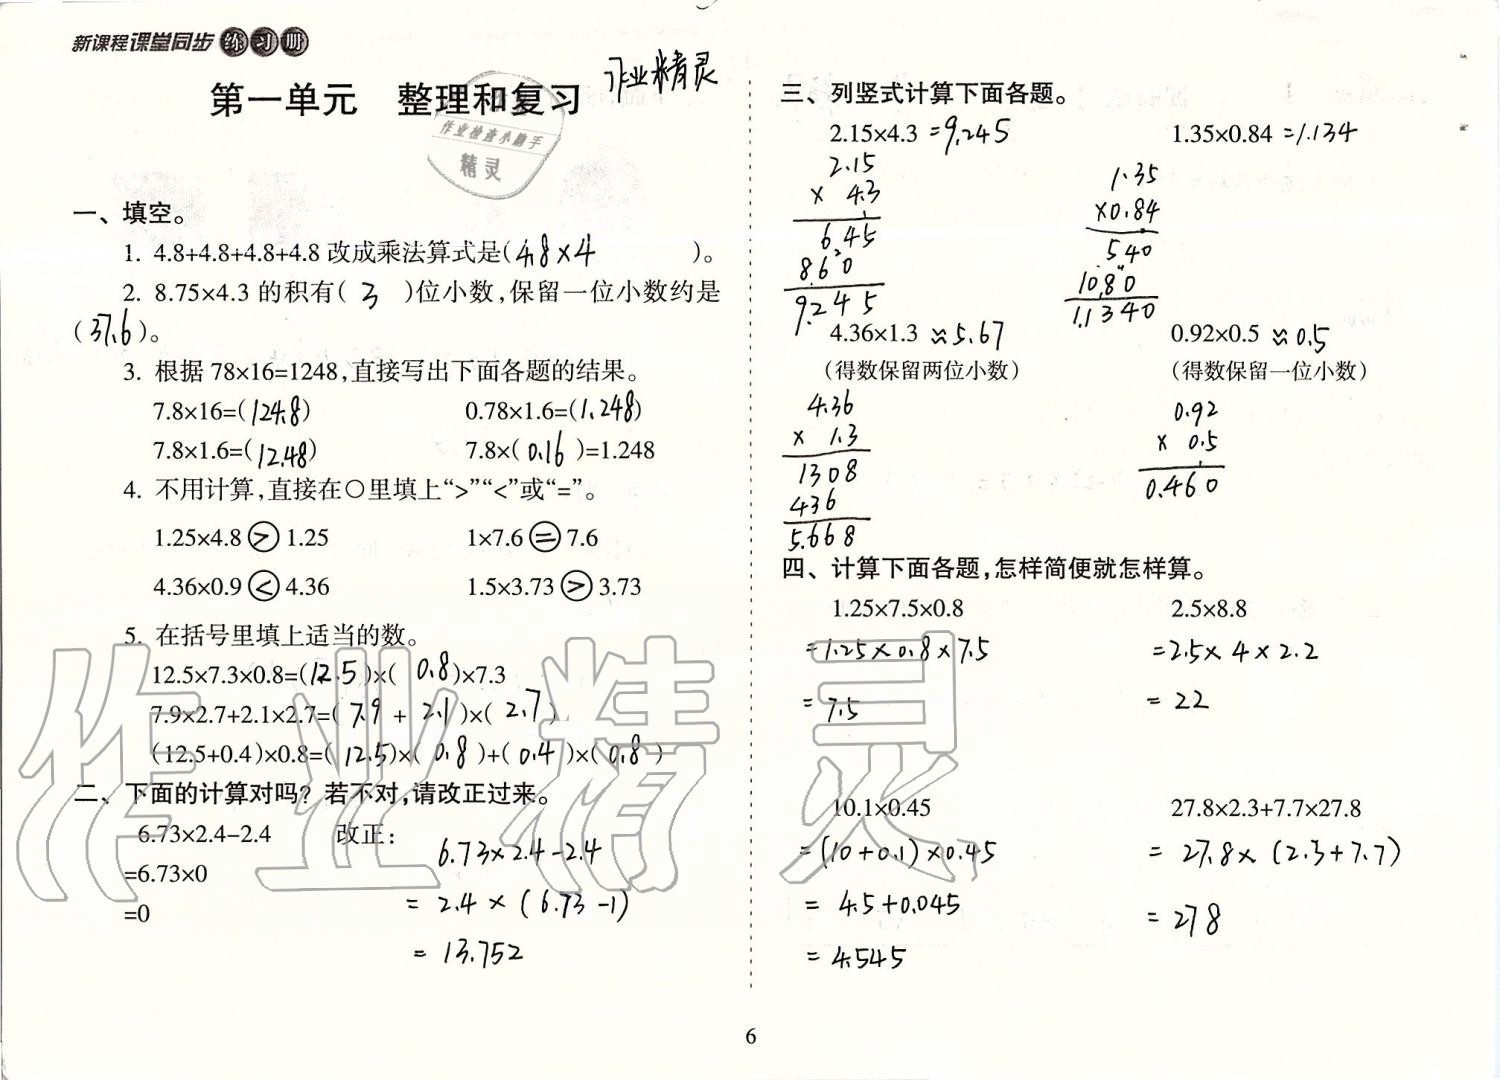 新课程课堂同步练习册
第一单元 整理和复习
作业精灵
作业检查小助手
精灵
一、填空。
1. 4.8+4.8+4.8+4.8改成乘法算式是(4.8×4)。
2. 8.75×4.3的积有(3)位小数,保留一位小数约是
(37.6)。
3. 根据78×16=1248,直接写出下面各题的结果。
7.8×16=(124.8) 0.78×1.6=(1.248)
7.8×1.6=(12.48) 7.8×(0.16)=1.248
4. 不用计算,直接在○里填上“>”“<”或“=”。
1.25×4.8 > 1.25 1×7.6 = 7.6
4.36×0.9 < 4.36 1.5×3.73 > 3.73
5. 在括号里填上适当的数。
12.5×7.3×0.8=(12.5)×(0.8)×7.3
7.9×2.7+2.1×2.7=(7.9+2.1)×(2.7)
(12.5+0.4)×0.8=(12.5)×(0.8)+(0.4)×(0.8)
二、下面的计算对吗?若不对,请改正过来。
6.73×2.4-2.4 改正: 6.73×2.4-2.4
=6.73×0 = 2.4×(6.73-1)
=0 = 13.752
三、列竖式计算下面各题。
2.15×4.3=9.245 1.35×0.84=1.134
2.15 1.35
× 4.3 ×0.84
645 540
860 1080
9.245 1.1340
4.36×1.3≈5.67 0.92×0.5≈0.5
(得数保留两位小数) (得数保留一位小数)
4.36 0.92
× 1.3 × 0.5
1308 0.460
436
5.668
四、计算下面各题,怎样简便就怎样算。
1.25×7.5×0.8 2.5×8.8
=1.25×0.8×7.5 =2.5×4×2.2
=7.5 =22
10.1×0.45 27.8×2.3+7.7×27.8
=(10+0.1)×0.45 =27.8×(2.3+7.7)
=4.5+0.045 =278
=4.545
作业精灵
6